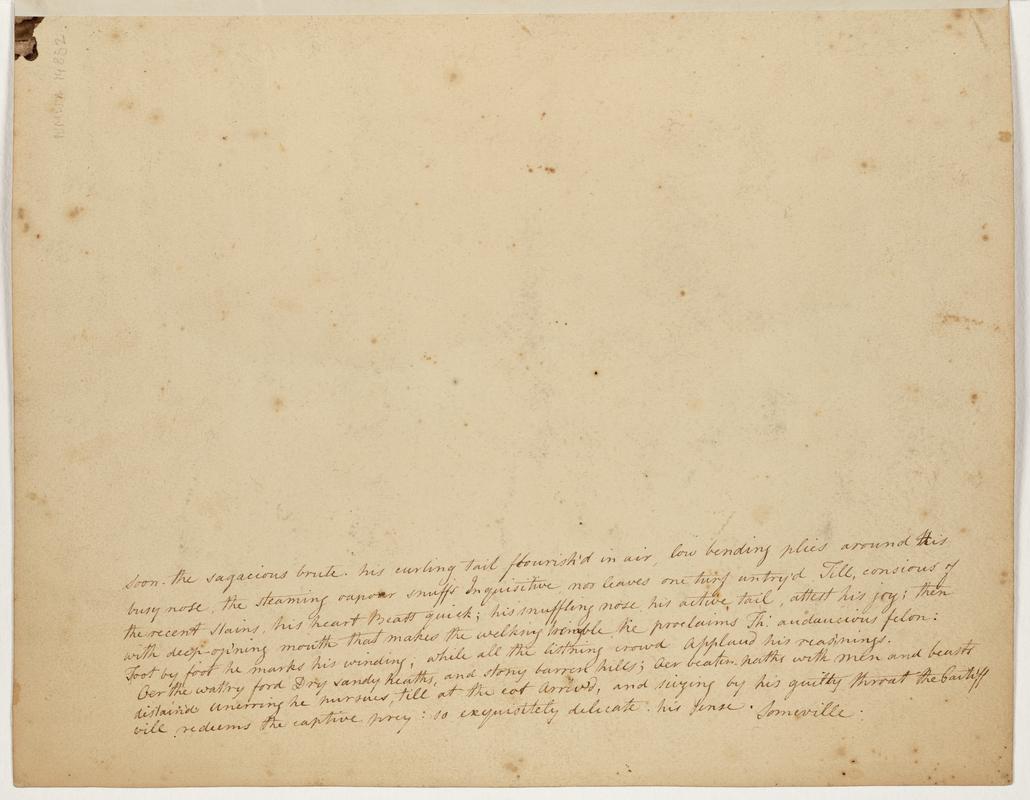 Soon. the sagacious brute. his curling tail flourish'd in air, low bending plies around His
busy nose, the steaming vapour snuffs Inquisitive, nor leaves one turf untry'd Till, consious of
the recent stains, his heart Beats quick; his snuffling nose, his active tail, attest his joy; then
with deep-opining mouth that makes the welking trimble, he proclaims Th: audaucious felon:
Foot by foot he marks his winding; while all the listhing crowd Applaud his reasnings.
Oer the watry ford Dry sandy heaths, and stony barren hills; Oer beaten paths with men and beasts
distain'd unerring he pursues, till at the cot Arriv'd, and siezing by his guilty throat the Caitiff
vill redeems the captive prey: so exquisitely delicate his sense. Somerville.